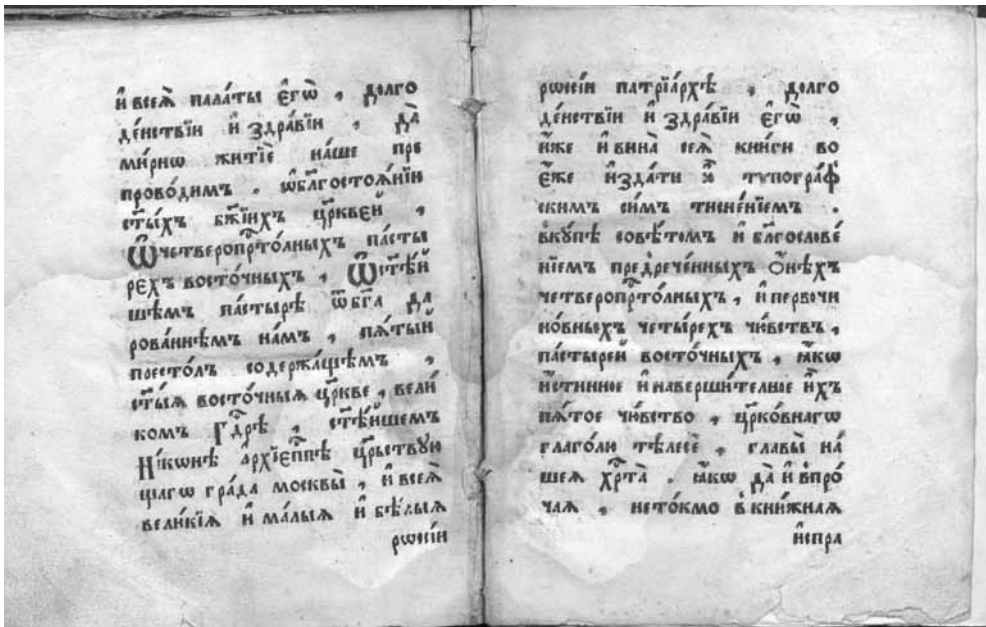 и҆ всеѧ̀ пала́ты є҆гѡ̀ , долго
де́нствїи и҆ здра́вїи , да̀
ми́рнѡ житїѐ на́ше пре
прово́димъ . ѡ҆бл҃госто́ѧнїи
ст҃ы́хъ бж҃їихъ цр҃кве́й ,
Ѿчетверопрⷭ҇то́лныхъ па́сты
ре́хъ восто́чныхъ , Ѿст҃ѣ́й
шемъ па́стырѣ ѿбг҃а да
рова́ннѣмъ нам , пѧ́тый
престо́лъ содержа́щѣмъ ,
ст҃ы́ѧ восто́чныѧ цр҃кве , вели́
комъ Гдⷭ҇рѣ , ст҃ѣ́йшемъ
Ни́кѡнѣ а҆рхїепⷭ҇пѣ цр҃ьствꙋю
щагѡ гра́да москвы̀ , и҆ всеѧ̀
вели́кїѧ и҆ ма́лыѧ и҆ бѣ́лыѧ
рѡсїи
рѡсїи патрїа́рхѣ , долго
де́нствїи и҆ здра́вїи є҆гѡ̀ ,
и҆́же и҆ вина̀ сеѧ̀ кни́ги во
є҆́же и҆зда́ти ю҆̀ тѵпогра́ф
скимъ си́мъ тисне́нїемъ .
вкꙋ́пѣ совѣ́томъ и҆ бл҃гослове́
нїемъ предрече́нныхъ ѻ҆́нѣхъ
четверопрⷭ҇то́лныхъ , и҆ первочи
но́вныхъ четы́рехъ чꙋ́вствъ ,
па́стырей восто́чныхъ , ꙗ҆́кѡ
и҆́стинное и҆ наверши́телное и҆́хъ
пѧ́тое чꙋ́вство , цр҃ко́внагѡ
глаго́лю тѣлесѐ , главы̀ на́
шеѧ хрⷭ҇та̀ . ꙗ҆́кѡ да̀ и҆ впро́
чаѧ , нето́кмо в кни́жнаѧ
и҆спра